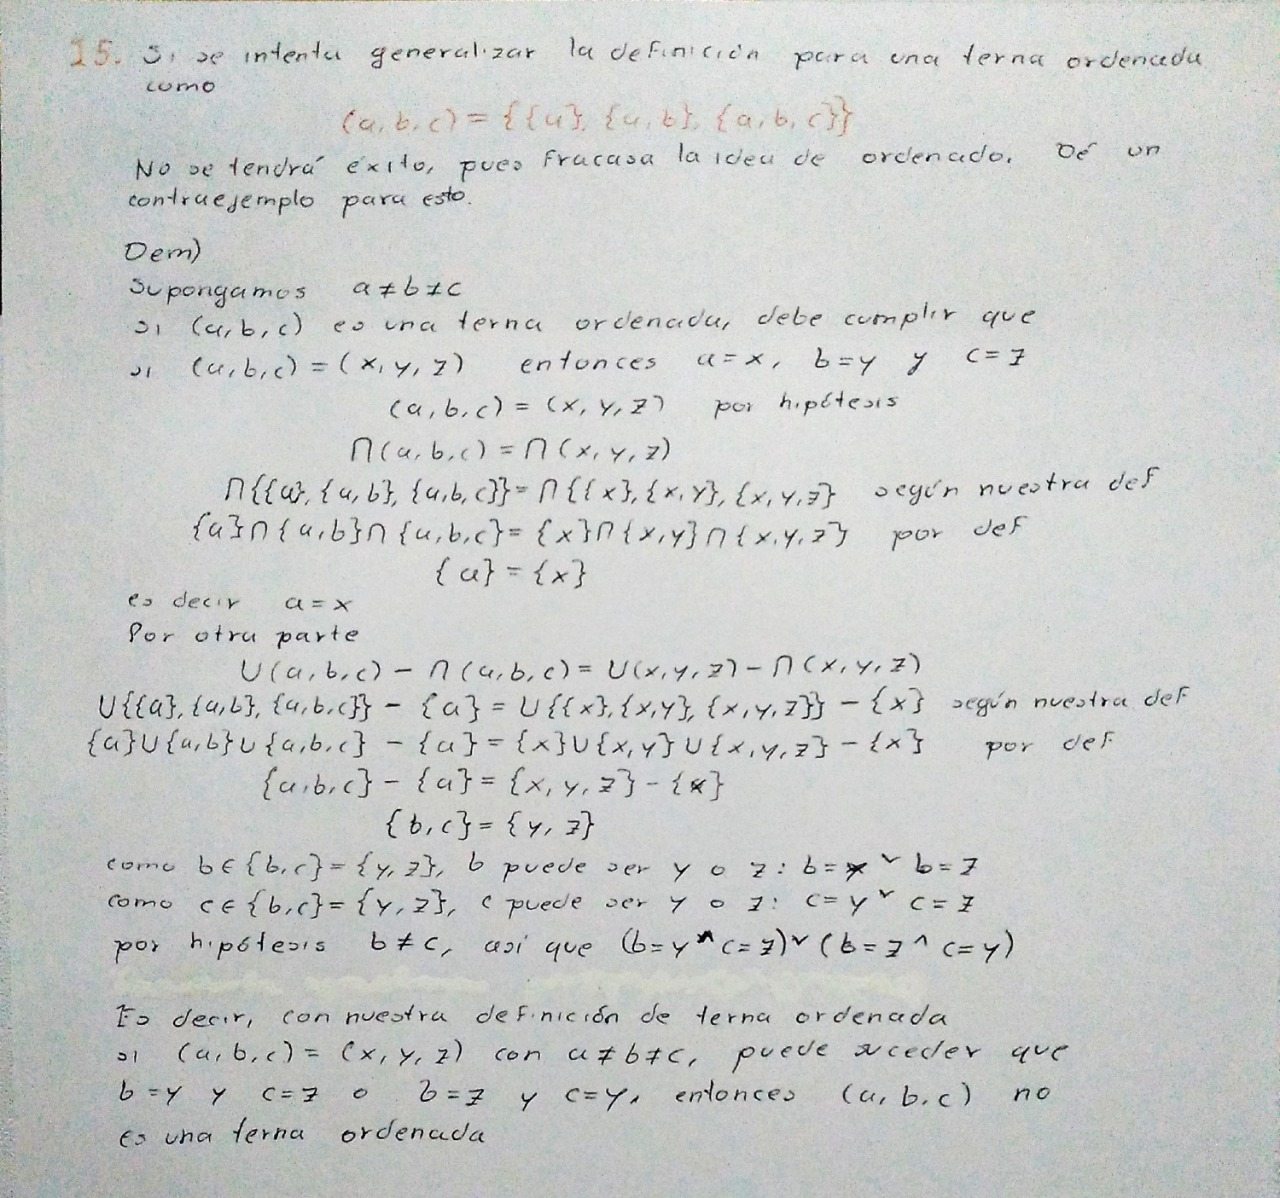 15. Si se intenta generalizar la definición para una terna ordenada
como
(a, b, c) = {{a}, {a, b}, {a, b, c}}
No se tendrá éxito, pues fracasa la idea de ordenado. Dé un
contraejemplo para esto.
Dem)
Supongamos a ≠ b ≠ c
si (a, b, c) es una terna ordenada, debe cumplir que
si (a, b, c) = (x, y, z) entonces a = x, b = y y c = z
(a, b, c) = (x, y, z) por hipótesis
∩(a, b, c) = ∩(x, y, z)
∩{{a}, {a, b}, {a, b, c}} = ∩{{x}, {x, y}, {x, y, z} según nuestra def
{a}∩{a, b}∩{a, b, c} = {x}∩{x, y}∩{x, y, z} por def
{a} = {x}
es decir a = x
Por otra parte
∪(a, b, c) - ∩(a, b, c) = ∪(x, y, z) - ∩(x, y, z)
∪{{a}, {a, b}, {a, b, c}} - {a} = ∪{{x}, {x, y}, {x, y, z}} - {x} según nuestra def
{a}∪{a, b}∪{a, b, c} - {a} = {x}∪{x, y}∪{x, y, z} - {x} por def
{a, b, c} - {a} = {x, y, z} - {x}
{b, c} = {y, z}
como b ∈ {b, c} = {y, z}, b puede ser y o z: b = y ∨ b = z
como c ∈ {b, c} = {y, z}, c puede ser y o z: c = y ∨ c = z
por hipótesis b ≠ c, así que (b = y ∧ c = z) ∨ (b = z ∧ c = y)
Es decir, con nuestra definición de terna ordenada
si (a, b, c) = (x, y, z) con a ≠ b ≠ c, puede suceder que
b = y y c = z o b = z y c = y, entonces (a, b, c) no
es una terna ordenada